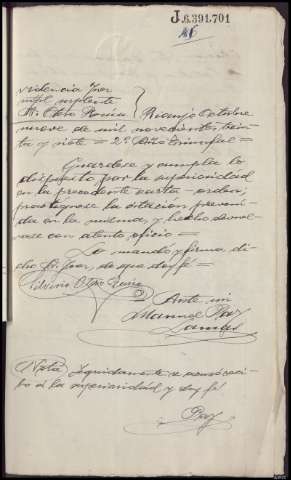 J.6.391.701
16
Providencia Juez
mpal suplente
Sr. Otero Roma Rianjo Octubre
nueve de mil novecientos trein
ta y siete = 2º Año triunfal =
Guardese y cumpla lo
dispuesto por la superioridad
en la precedente carta-orden;
practíquese la citación preveni
da en la misma, y hecho devuel
vase con atento oficio =
Lo mandó y firma di
cho Sr. Juez, de que doy fé =
Otero
Ante mi
Manuel
Nota Seguidamente se acusó reci
bo á la superioridad y doy fé